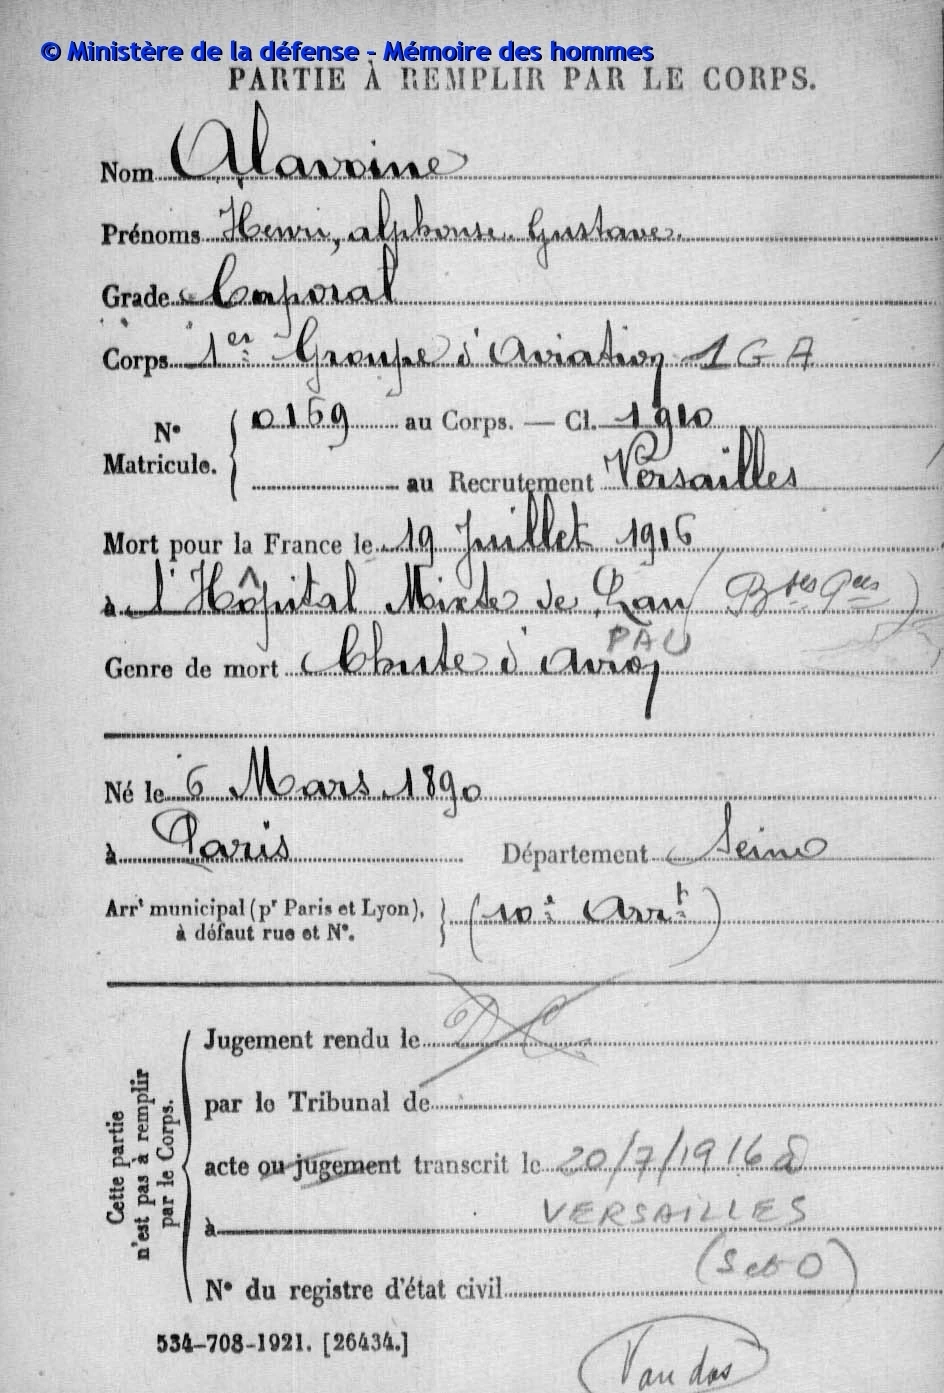 © Ministère de la défense - Mémoire des hommes
PARTIE À REMPLIR PAR LE CORPS.
Nom Alavoine
Prénoms Henri, alphonse. Gustave.
Grade Caporal
Corps 1er Groupe d'Aviation 1 G A
N° Matricule. { 0169 au Corps. — Cl. 1910
au Recrutement Versailles
Mort pour la France le 19 Juillet 1916
à l'Hôpital Mixte de Pau (Bses Pées)
PAU
Genre de mort Chute d'avion
Né le 6 Mars 1890
à Paris Département Seine
Arrt municipal (pr Paris et Lyon), } (10e Arrt)
à défaut rue et N°.
Cette partie
n'est pas à remplir
par le Corps.
Jugement rendu le D C
par le Tribunal de
acte ou jugement transcrit le 20/7/1916 à
à VERSAILLES
(S et O)
N° du registre d'état civil
534-708-1921. [26434.]